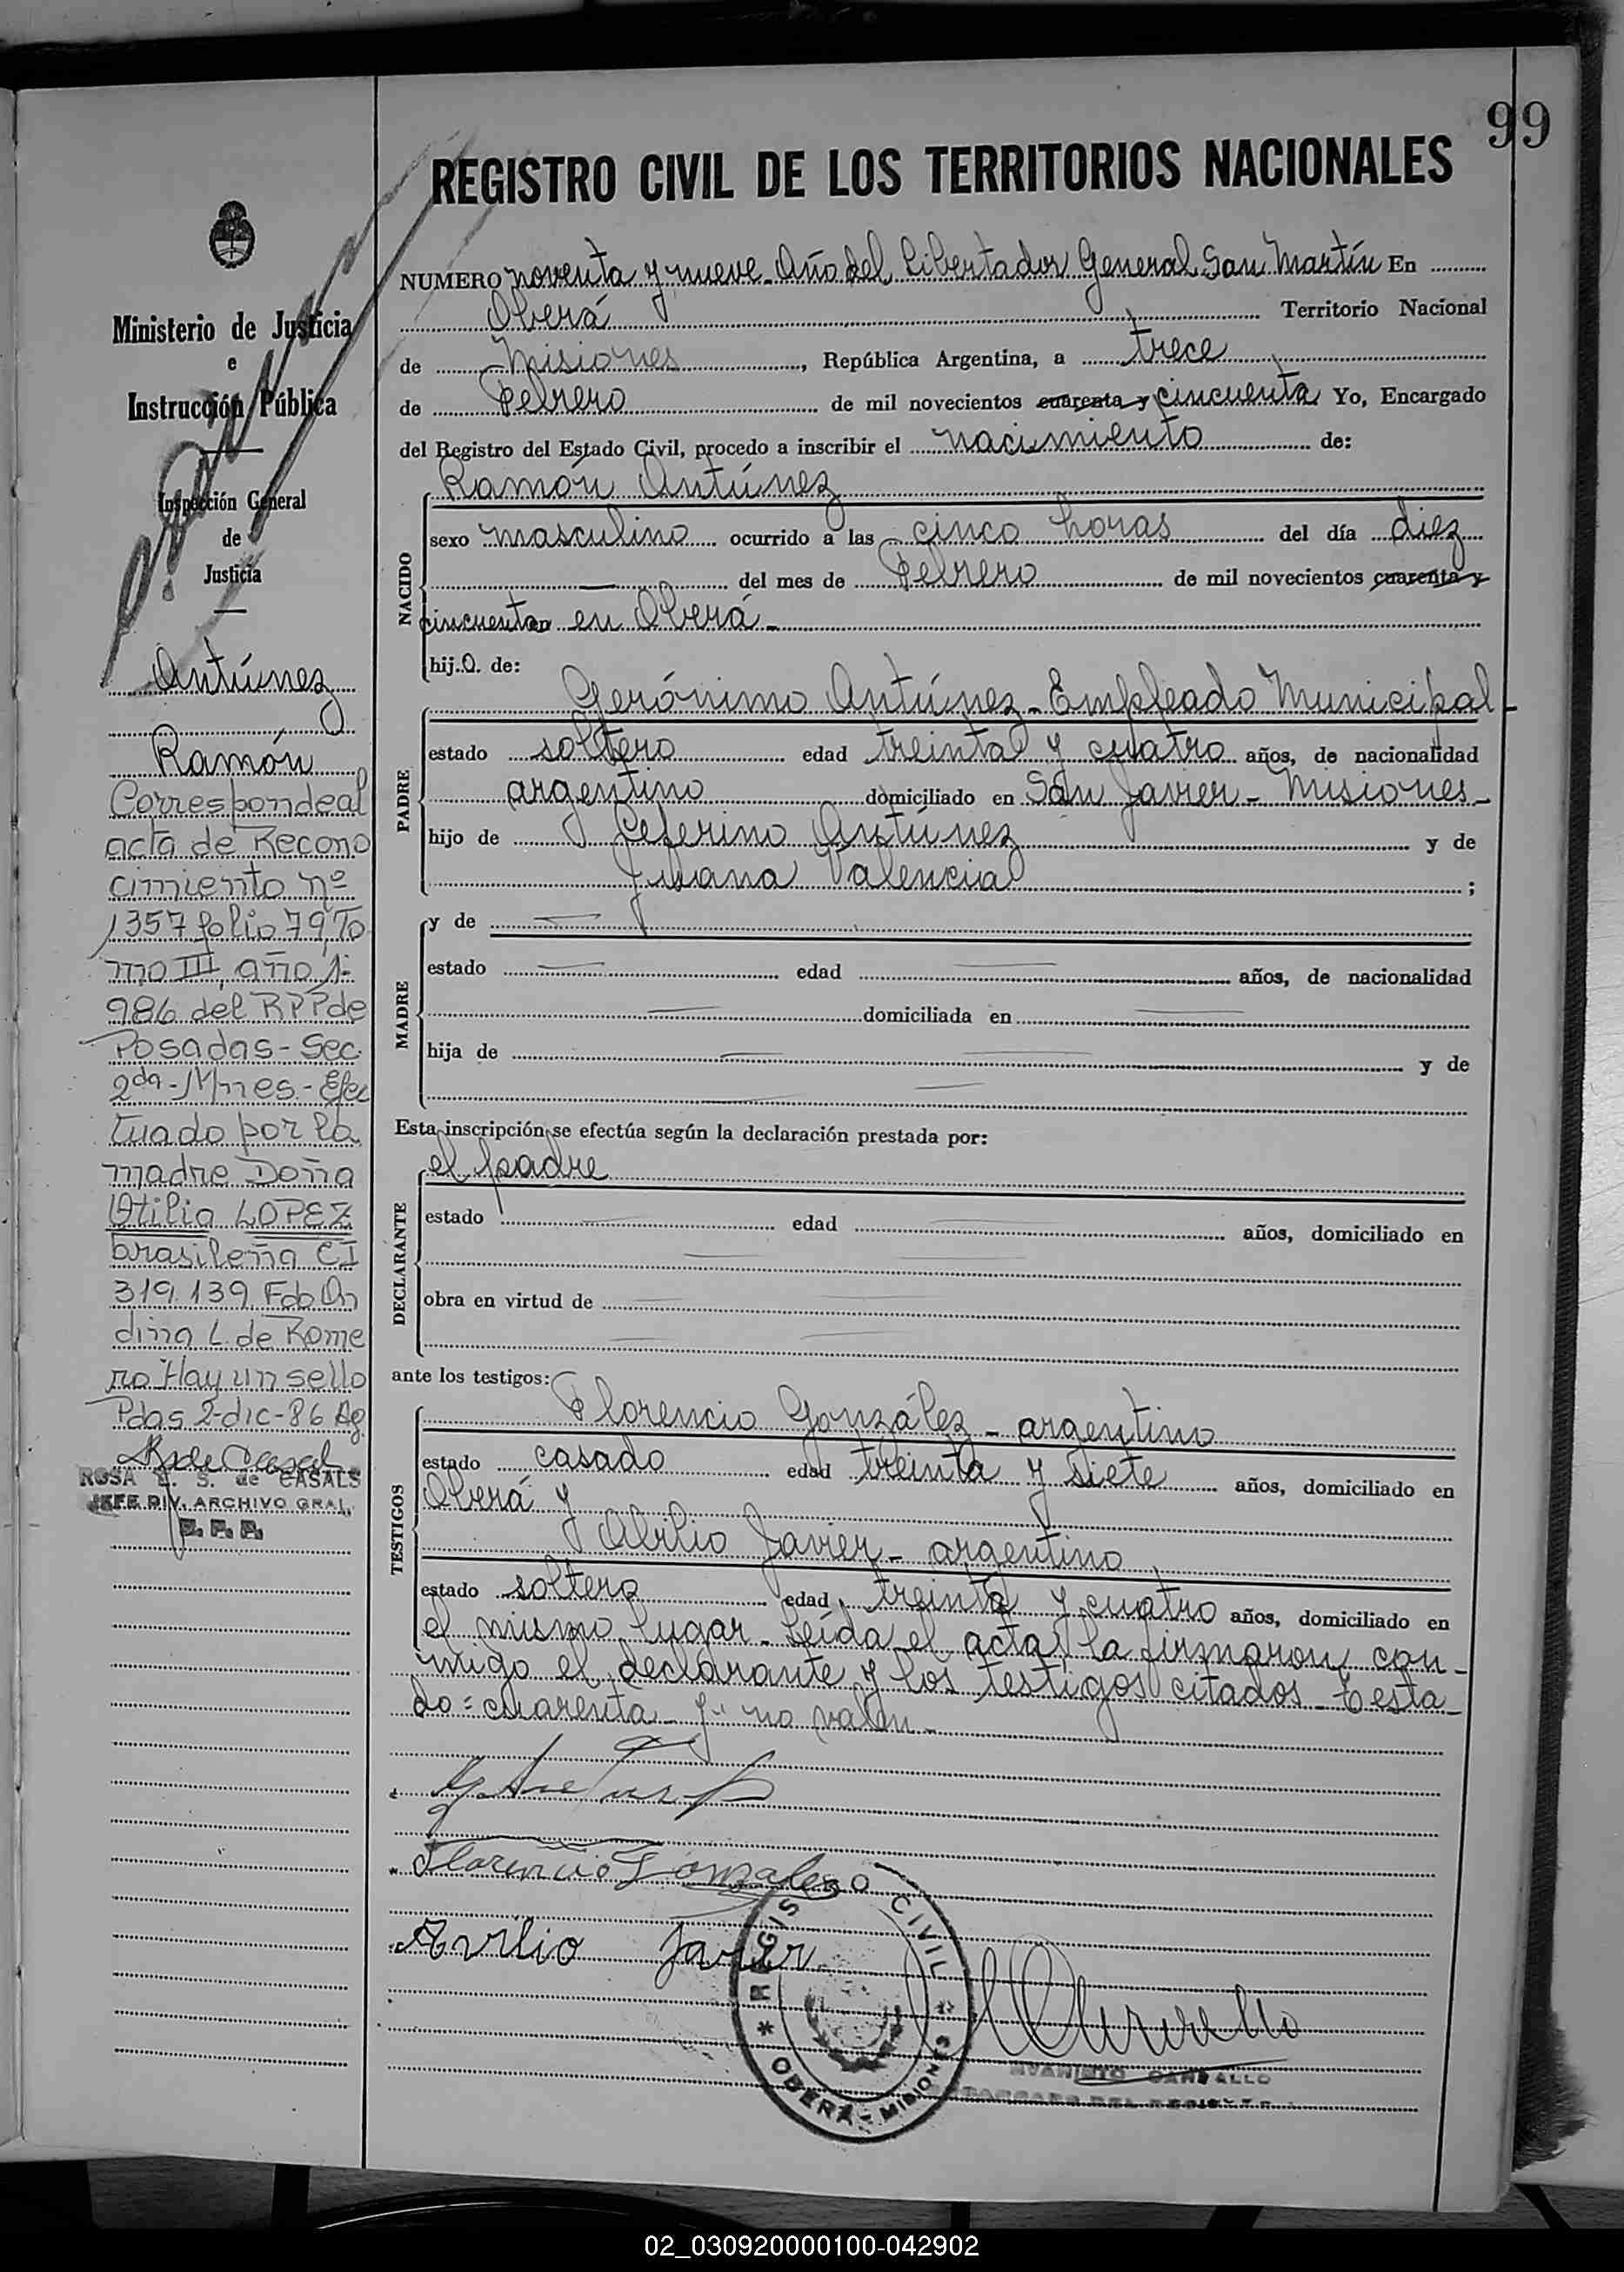 99
REGISTRO CIVIL DE LOS TERRITORIOS NACIONALES
NUMERO noventa y nueve - Año del Libertador General San Martín En
Oberá Territorio Nacional
de Misiones, República Argentina, a trece
de Febrero de mil novecientos cuarenta y cincuenta Yo, Encargado
del Registro del Estado Civil, procedo a inscribir el nacimiento de:
Ramón Antúnez
NACIDO
sexo masculino ocurrido a las cinco horas del día diez
del mes de Febrero de mil novecientos cuarenta y
cincuenta en Oberá -
hijo de:
PADRE
Gerónimo Antúnez - Empleado Municipal -
estado soltero edad treinta y cuatro años, de nacionalidad
argentino domiciliado en San Javier - Misiones -
hijo de Ceferino Antúnez y de
Juliana Valencia ;
MADRE
y de
estado edad años, de nacionalidad
domiciliada en
hija de y de
Esta inscripción se efectúa según la declaración prestada por:
DECLARANTE
el padre
estado edad años, domiciliado en
obra en virtud de
ante los testigos:
TESTIGOS
Florencio González - argentino
estado casado edad treinta y siete años, domiciliado en
Oberá y
Abilio Javier - argentino
estado soltero edad treinta y cuatro años, domiciliado en
el mismo lugar - Leída el acta la firmaron con-
migo el declarante y los testigos citados - Testa-
do = cuarenta - y" no valen -
Florencio Gonzalez
Avilio Javier
REGISTRO CIVIL
* OBERÁ - MISIONES *
EVARISTO CARBALLO
ENCARGADO DEL REGISTRO
Ministerio de Justicia
e
Instrucción Pública
Inspección General
de
Justicia
Antúnez
Ramón
Corresponde al
acta de Recono
cimiento nº
1357 folio 79, To
mo III, año 1-
986 del RPP de
Posadas - Sec.
2da - Mnes. - Efec
tuado por la
madre Doña
Otilia LOPEZ
brasileña CI
319.139 Fdo On
dina L. de Rome
ro Hay un sello
Pdas 2-dic-86 Ag
ROSA E. S. de CASALS
JEFE DIV. ARCHIVO GRAL.
R. P. P.
02_030920000100-042902